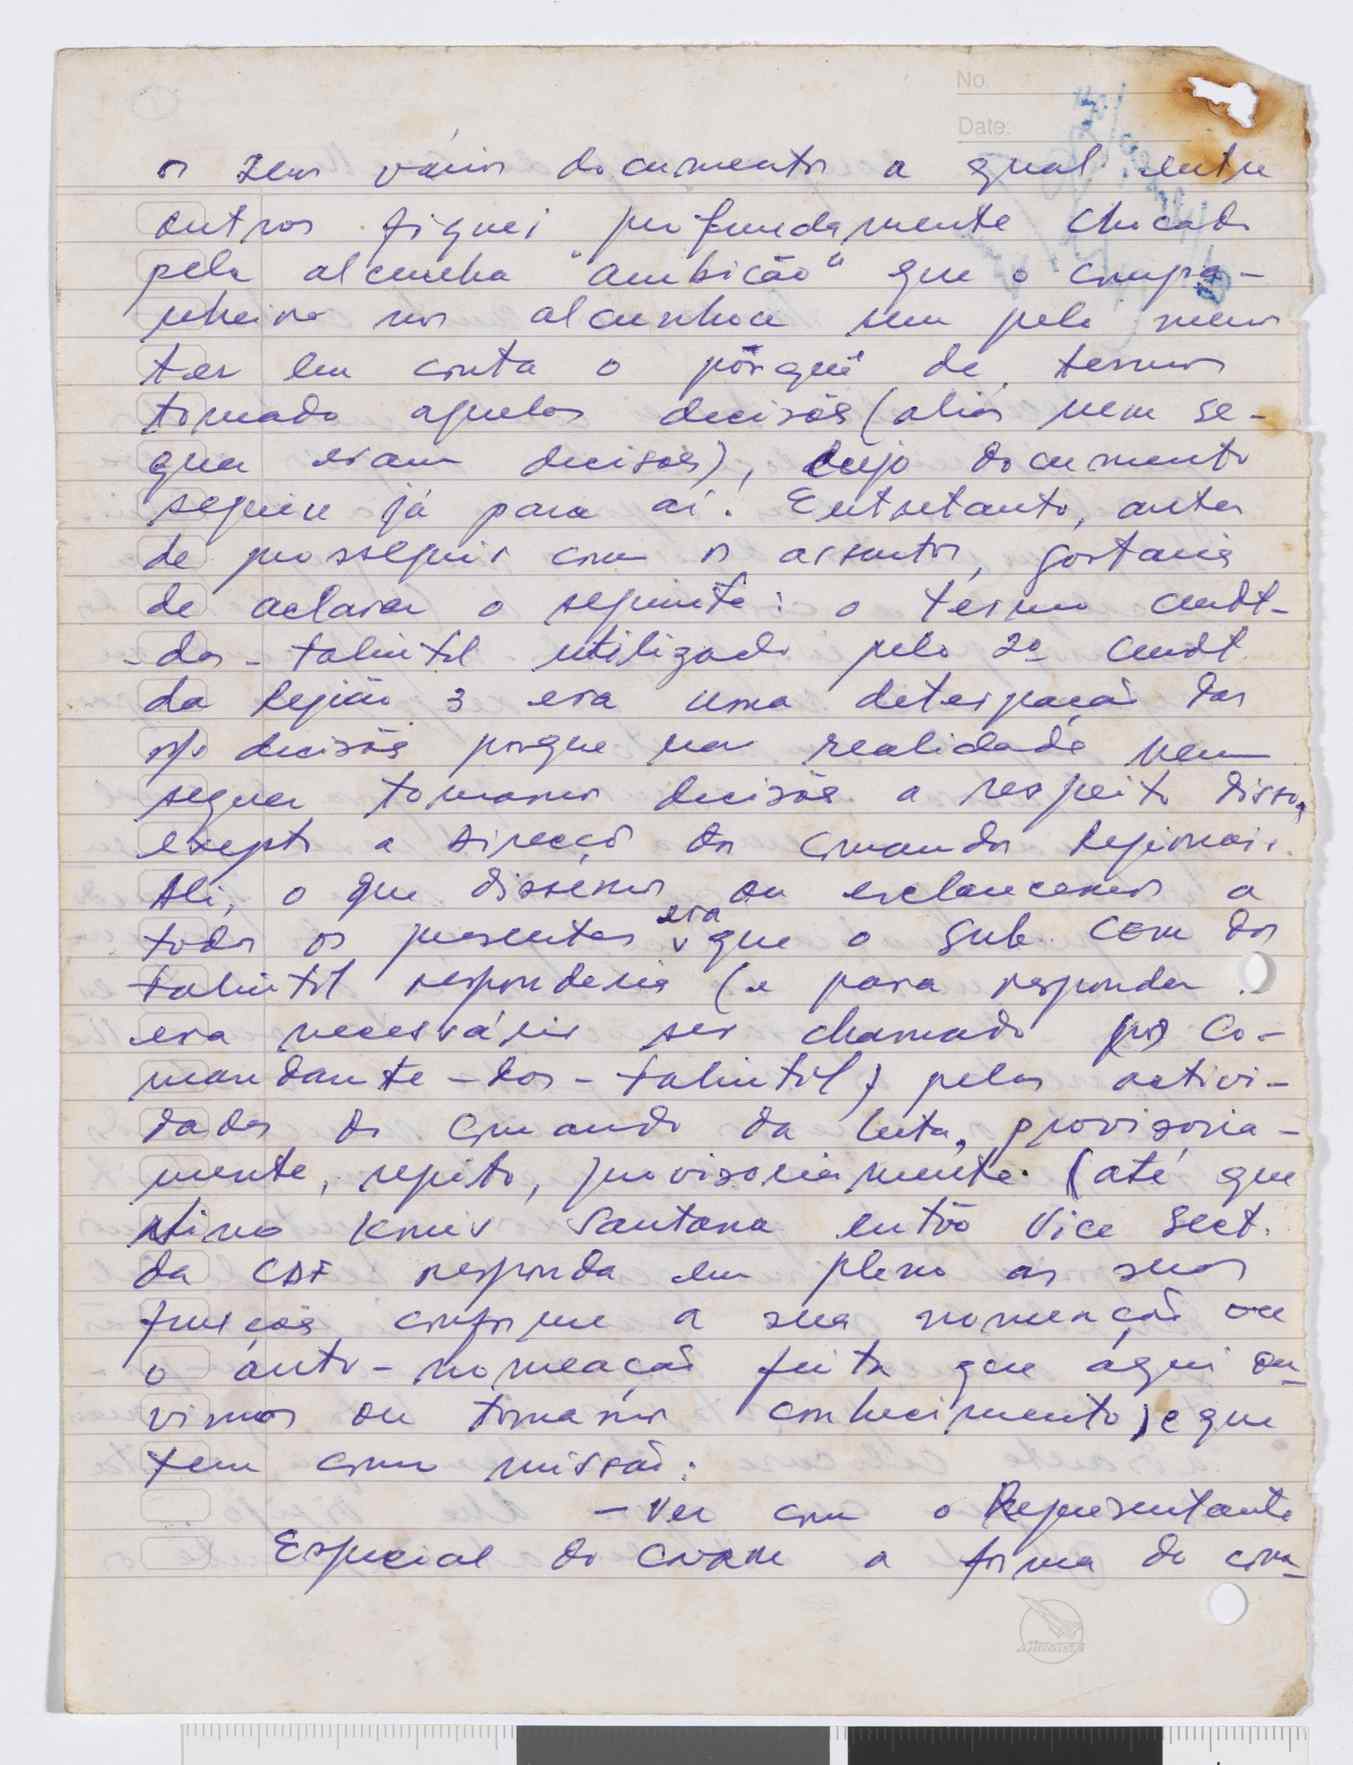 No.
Date:
os seus vários documentos a qual entre
outros fiquei profundamente chocado
pela alcunha "ambicão" que o compa-
nheiro nos alcunhou sem pelo menos
ter em conta o pôrquê de termos
tomado aquelas decisões (aliás nem se-
quer eram decisões), cujo documento
seguiu já para aí. Entretanto, antes
de prosseguir com os assuntos, gostaria
de aclarar o seguinte: o têrmo Cmdt-
-das-Falintil utilizado pelo 2º Cmdt
da Região 3 era uma deterpação das
n/s decisões porque na realidade nem
sequer tomamos decisões a respeito disso,
excepto a Direcção dos Comandos Regionais.
Ali, o que dissemos ou esclarecemos a
todos os presentes era que o Sub CEM das
Falintil responderia (e para responder
era necessário ser chamado por Co-
mandante-das-Falintil) pelas activi-
dades do Comando da Luta, provisoria-
mente, repito, provisoriamente (até que
Nino Konis Santana então Vice Sect.
da CDF responda em pleno as suas
funções conforme a sua nomeação ou
o áuto-nomeação feita que áqui ou-
vimos ou tomámos conhecimento) e que
tem como missão:
- Ver com o Representante
Especial do CNRM a forma do com-